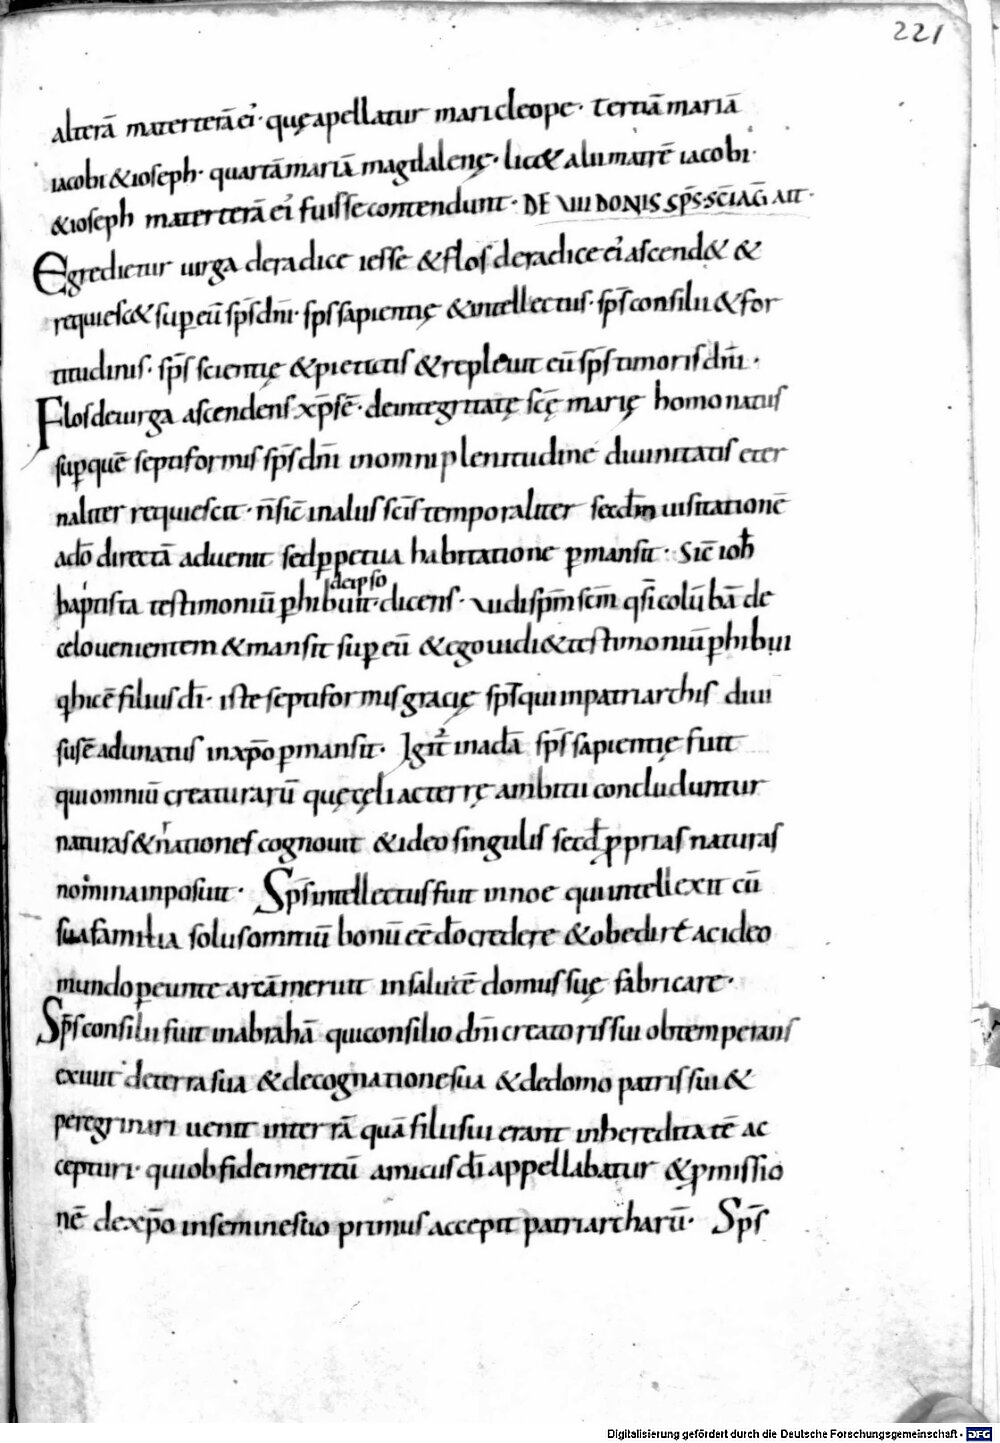 221
alterā materterā ei᾽· quę apellatur mari cleope· Tertiā mariā
iacobi & ioseph· quartā mariā magdalenę· lic& alii matrē iacobi·
& ioseph materterā ei᾽ fuisse contendunt· DE VIII DONIS SP̅S· SC̅I AG̅ AIT·
Egredietur uirga de radice iesse & flos de radice ei᾽ ascend& &
requiesc& sup eū sp̅s dn̅i· sp̅s sapientię & intellectus· sp̅s consilii & for
titudinis· sp̅s scientię & pietatis & repleuit eū sp̅s timoris dn̅i·
Flos de uirga ascendens xp̅s ē· de integritatę sc̅ę marię homo natus
sup quē septiformis sp̅s dn̅i in omni plenitudine diuinitatis eter
naliter requiescit· n̅ sic̅ in aliis sc̅is temporaliter secd̅m uisitationē
ad o̅ directā aduenit sed ppetua habitatione pmansit· sic̅ ioh̅
baptista testimoniū phibuit· de ipso dicens· Vidi sp̅m sc̅m q̅si colū bā de
celo uenientem & mansit sup eū & ego uidi & testimoniū phibui
q̅ hic ē filius di̅· iste septiformis gracię sp̅s qui in patriarchis diui
sus ē adunatus in xp̅o pmansit· Igit᾽ in adā sp̅s sapientię fuit
qui omniū creaturarū quę cęli ac terrę ambitu concluduntur
naturas & nationes cognouit & ideo singulis secd̅ pprias naturas
nomina inposuit· Sp̅s intellectus fuit in noe qui intellexit cū
sua familia solus omniū bonū ēē do̅ credere & obedire ac ideo
mundo peunte arcā meruit in salutē domus suę fabricare·
Sp̅s consilii fuit in abrahā qui consilio dn̅i creatoris sui obtemperans
exiuit de terra sua & de cognatione sua & de domo patris sui &
peregrinari uenit in terrā quā filii sui erant in hereditatē ac
cepturi· qui ob fidei meritū amicus di̅ appellabatur & pmissio
nē de xp̅o in semine suo primus accepit patriarcharū· Sp̅s
Digitalisierung gefördert durch die Deutsche Forschungsgemeinschaft - DFG